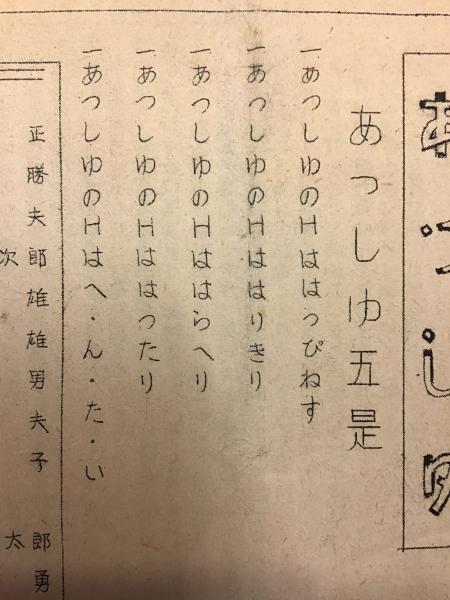 あっしゆ
あっしゆ五是
一あっしゆのHははっぴねす
一あっしゆのHははりきり
一あっしゆのHははらへり
一あっしゆのHははったり
一あっしゆのHはへ・ん・た・い
正勝夫郎雄雄男夫子 郎勇
次 太